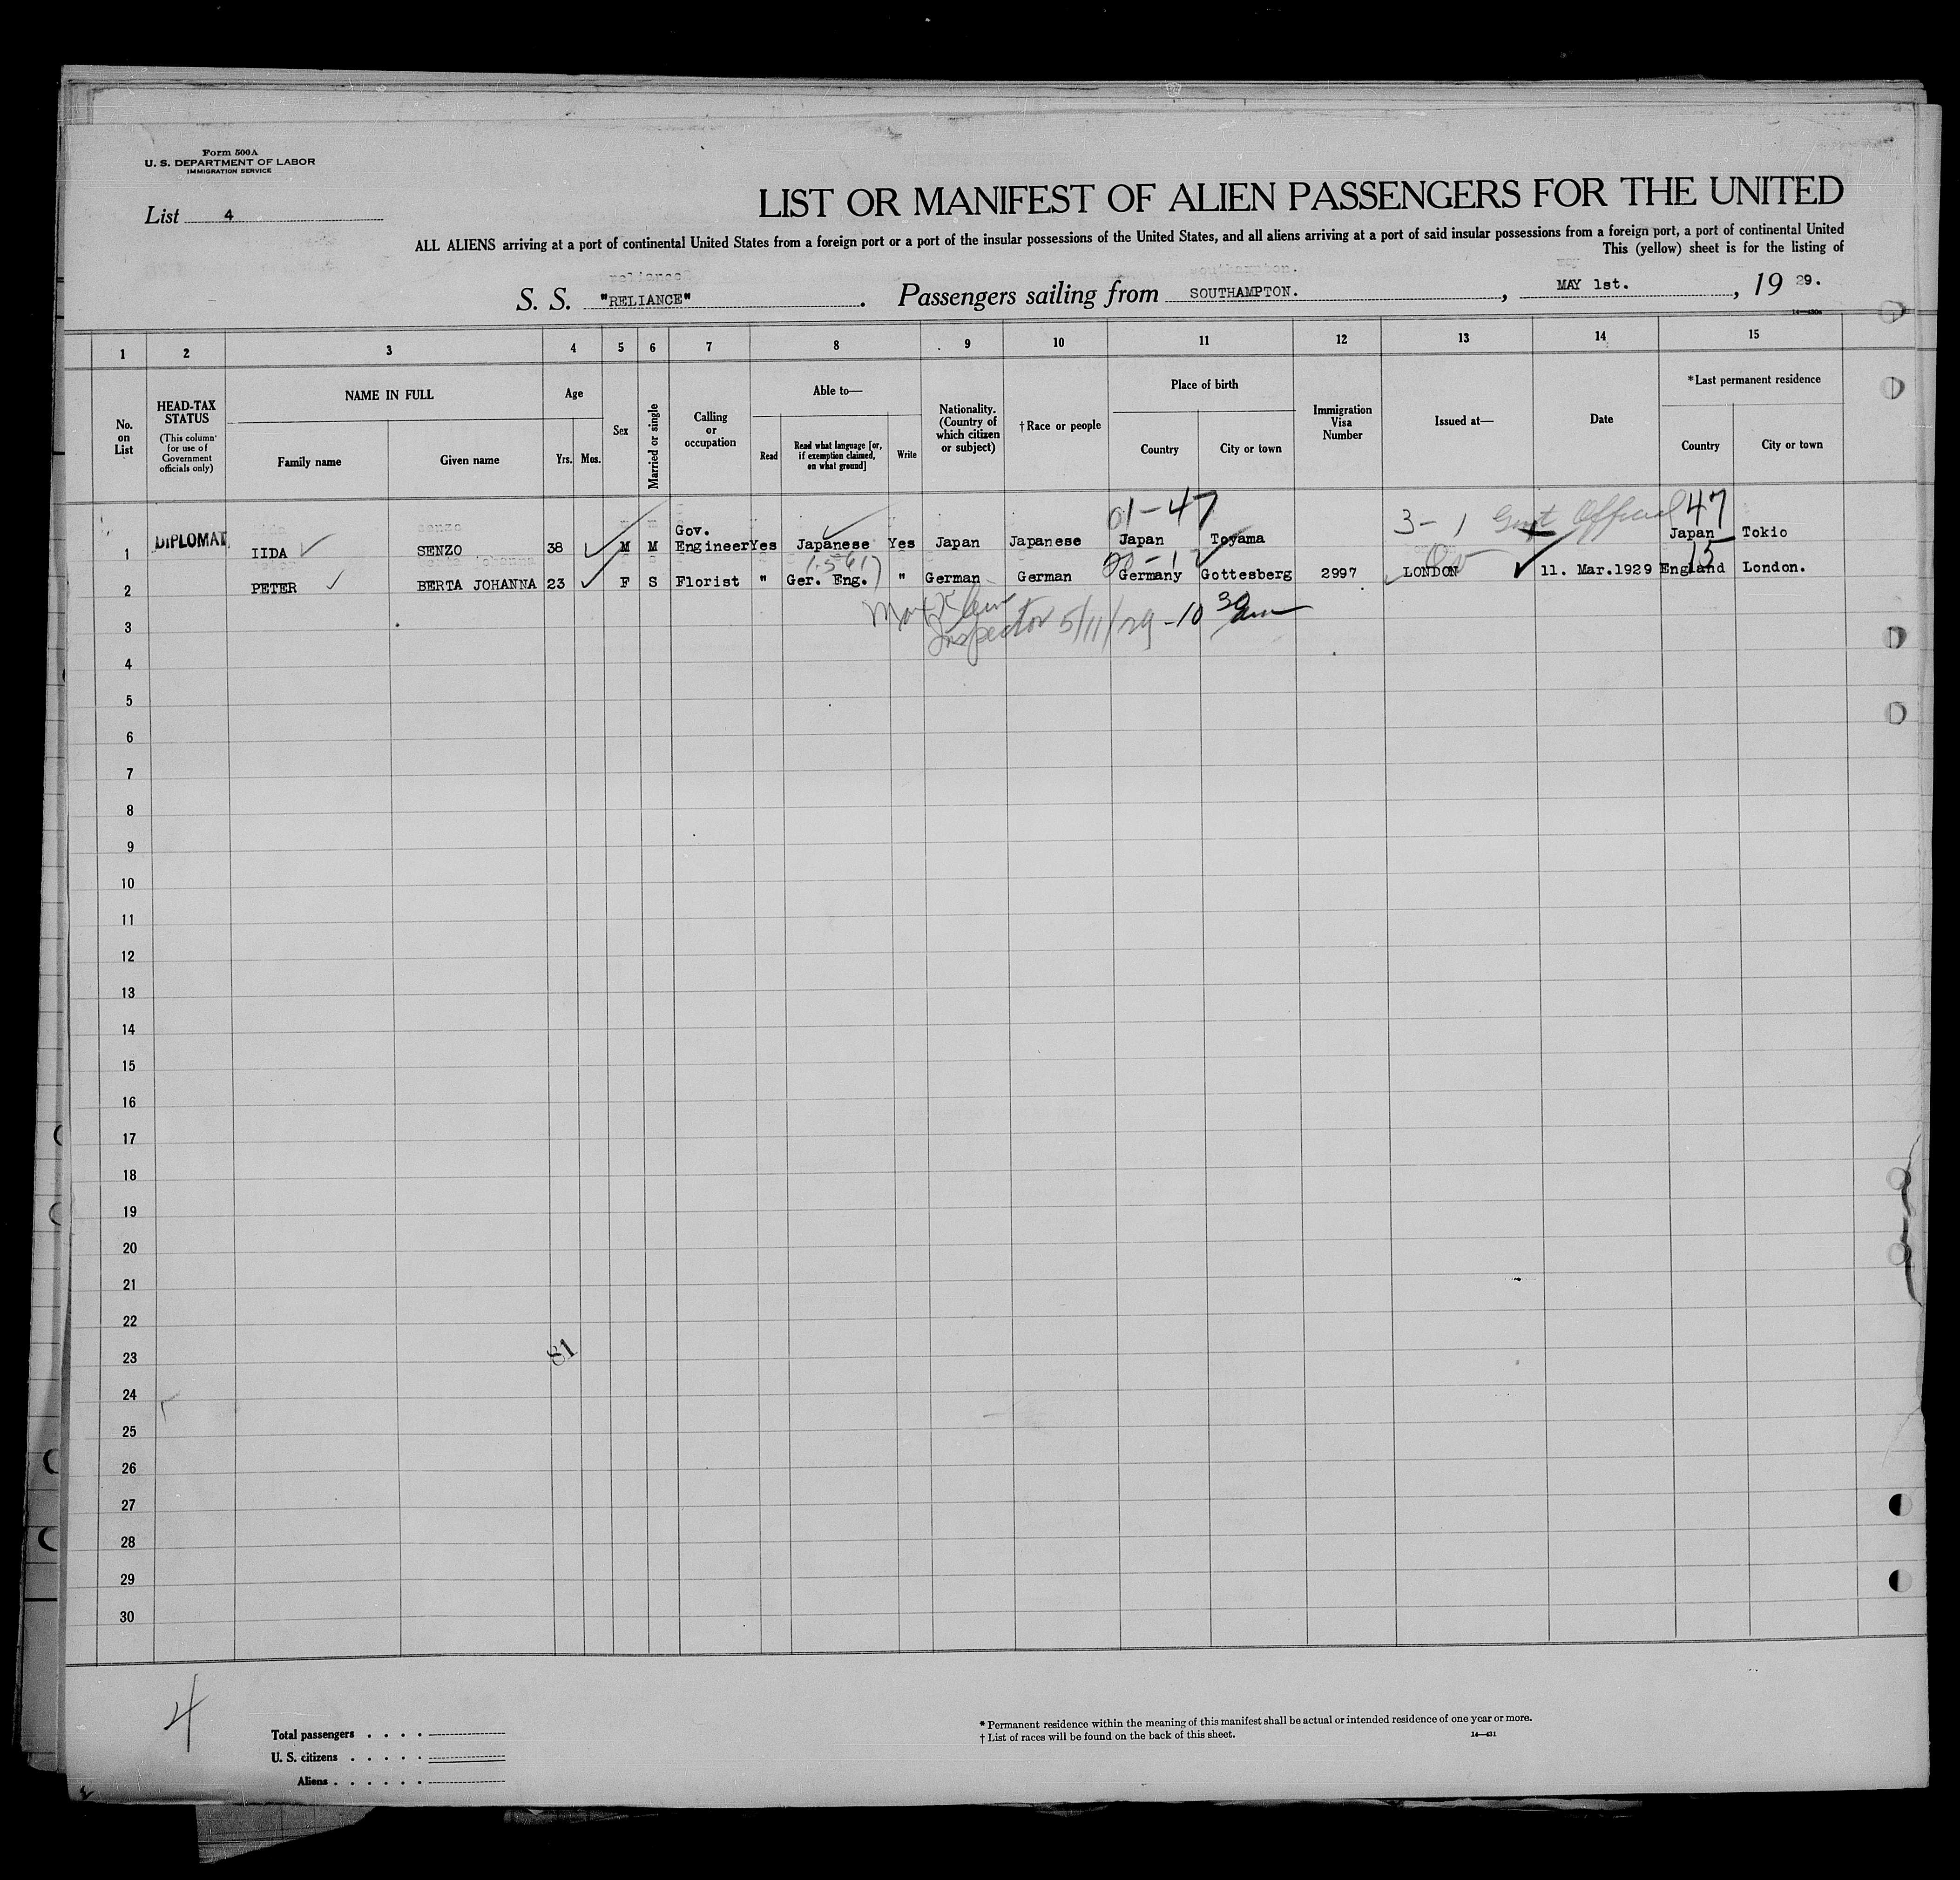 Form 500A
U. S. DEPARTMENT OF LABOR
IMMIGRATION SERVICE
List 4
LIST OR MANIFEST OF ALIEN PASSENGERS FOR THE UNITED
ALL ALIENS arriving at a port of continental United States from a foreign port or a port of the insular possessions of the United States, and all aliens arriving at a port of said insular possessions from a foreign port, a port of continental United
This (yellow) sheet is for the listing of
S. S. "RELIANCE". Passengers sailing from SOUTHAMPTON., MAY 1st., 1929.
1 2 3 4 5 6 7 8 9 10 11 12 13 14 15
No. on List
HEAD-TAX STATUS
(This column for use of Government officials only)
NAME IN FULL
Family name
Given name
Age
Yrs. Mos.
Sex
Married or single
Calling or occupation
Able to—
Read
Read what language [or, if exemption claimed, on what ground]
Write
Nationality. (Country of which citizen or subject)
†Race or people
Place of birth
Country
City or town
Immigration Visa Number
Issued at—
Date
*Last permanent residence
Country
City or town
01-47 3-1 Govt Official 47
1 DIPLOMAT IIDA SENZO 38 M M Gov. Engineer Yes Japanese Yes Japan Japanese Japan Toyama Japan Tokio
15
2 PETER BERTA JOHANNA 23 F S Florist " Ger. Eng. " German German Germany Gottesberg 2997 LONDON 11. Mar.1929 England London.
3 Inspector 5/11/29 - 10 30 am
4
5
6
7
8
9
10
11
12
13
14
15
16
17
18
19
20
21
22
23 81
24
25
26
27
28
29
30
4
Total passengers . . . .
U. S. citizens . . . . .
Aliens . . . . . .
* Permanent residence within the meaning of this manifest shall be actual or intended residence of one year or more.
† List of races will be found on the back of this sheet.
14—431